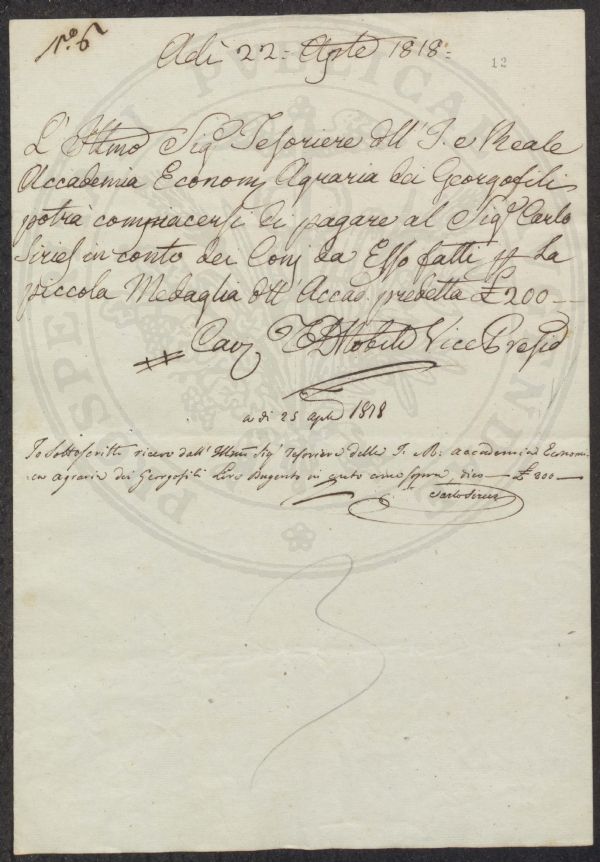 N.º 6
Adì 22 = Aprle 1818 =
12
L' Illmo Sigr Tesoriere dell' I. e Reale
Accademia Econom Agraria dei Georgofili
potrà compiacersi di pagare al Sigr Carlo
Siries in conto dei Conj da Esso fatti p La
piccola Medaglia dell' Accad. predetta £ 200 —
Cav Nobili Vice Presid
a di 25 aple 1818
Io Sottoscritto ricevo dall' Illmo Sigr Tesoriere della I. R. accademia Econom-
-ca agraria dei Georgofili Lire Dugento in conto come sopra dico — £ 200 —
Carlo Siries
PROSPERITATI PVBLICAE AVGENDAE